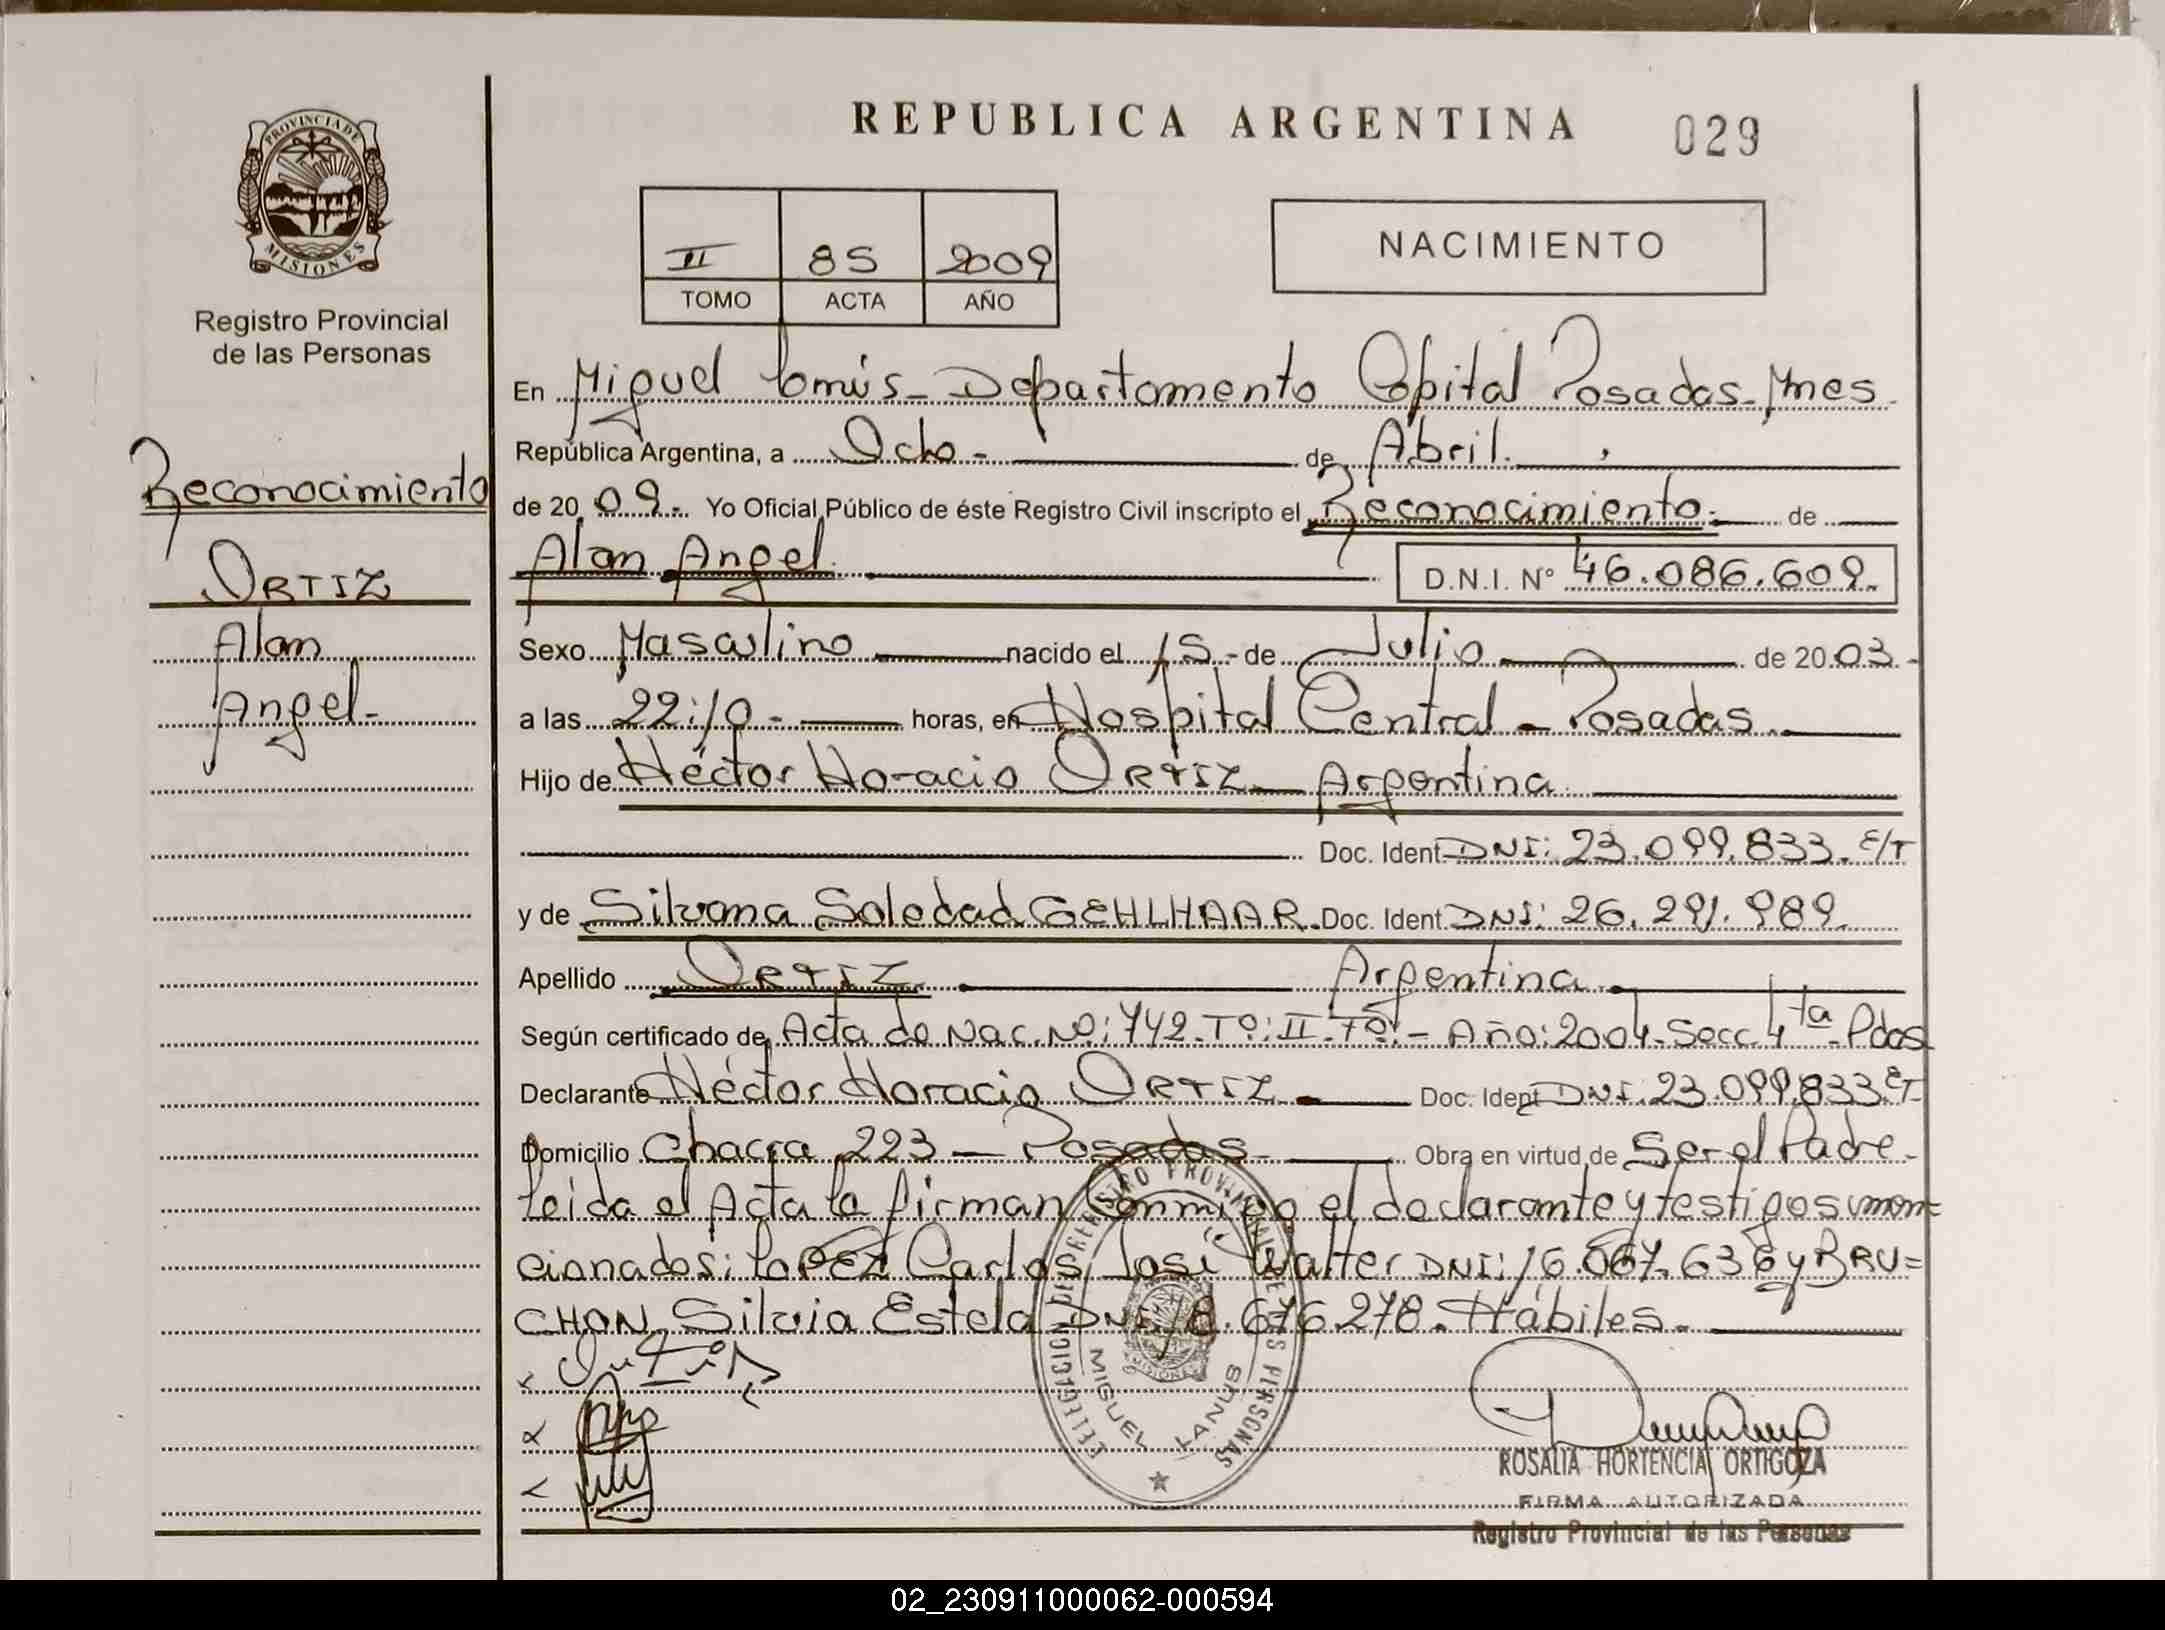 REPUBLICA ARGENTINA
029
PROVINCIA DE
MISIONES
Registro Provincial
de las Personas
II 85 2009
TOMO ACTA AÑO
NACIMIENTO
Reconocimiento
ORTIZ
Alan
Angel-
En Miguel Lanús - Departamento Capital Posadas - Mnes.
República Argentina, a Ocho - de Abril.
de 20 09.- Yo Oficial Público de éste Registro Civil inscripto el Reconocimiento.- de
Alan Angel. D.N.I. N° 46.086.609.
Sexo Masculino nacido el 15.- de Julio de 20 03.-
a las 22:10.- horas, en Hospital Central - Posadas.
Hijo de Héctor Horacio ORTIZ - Argentina
Doc. Ident. DNI: 23.099.833. E/T
y de Silvana Soledad GEHLHAAR. Doc. Ident. DNI: 26.291.989.
Apellido ORTIZ Argentina
Según certificado de Acta de Nac. Nº: 742. Tº: II. Fº: - Año: 2004. Secc. 4ta - Pdas
Declarante Héctor Horacio ORTIZ Doc. Ident DNI. 23.099.833 E/T
Domicilio Chacra 223 - Posadas Obra en virtud de Ser el Padre -
Leida el Acta la firman conmigo el declarante y testigos men=
cionados: LOPEZ Carlos José Walter DNI: 16.067.636 y BRU=
CHON Silvia Estela DNI 18.676.278. Hábiles.
DELEGACION DEL REGISTRO PROVINCIAL DE LAS PERSONAS
MISIONES
MIGUEL LANUS
ROSALIA HORTENCIA ORTIGOZA
FIRMA AUTORIZADA
Registro Provincial de las Personas
02_230911000062-000594